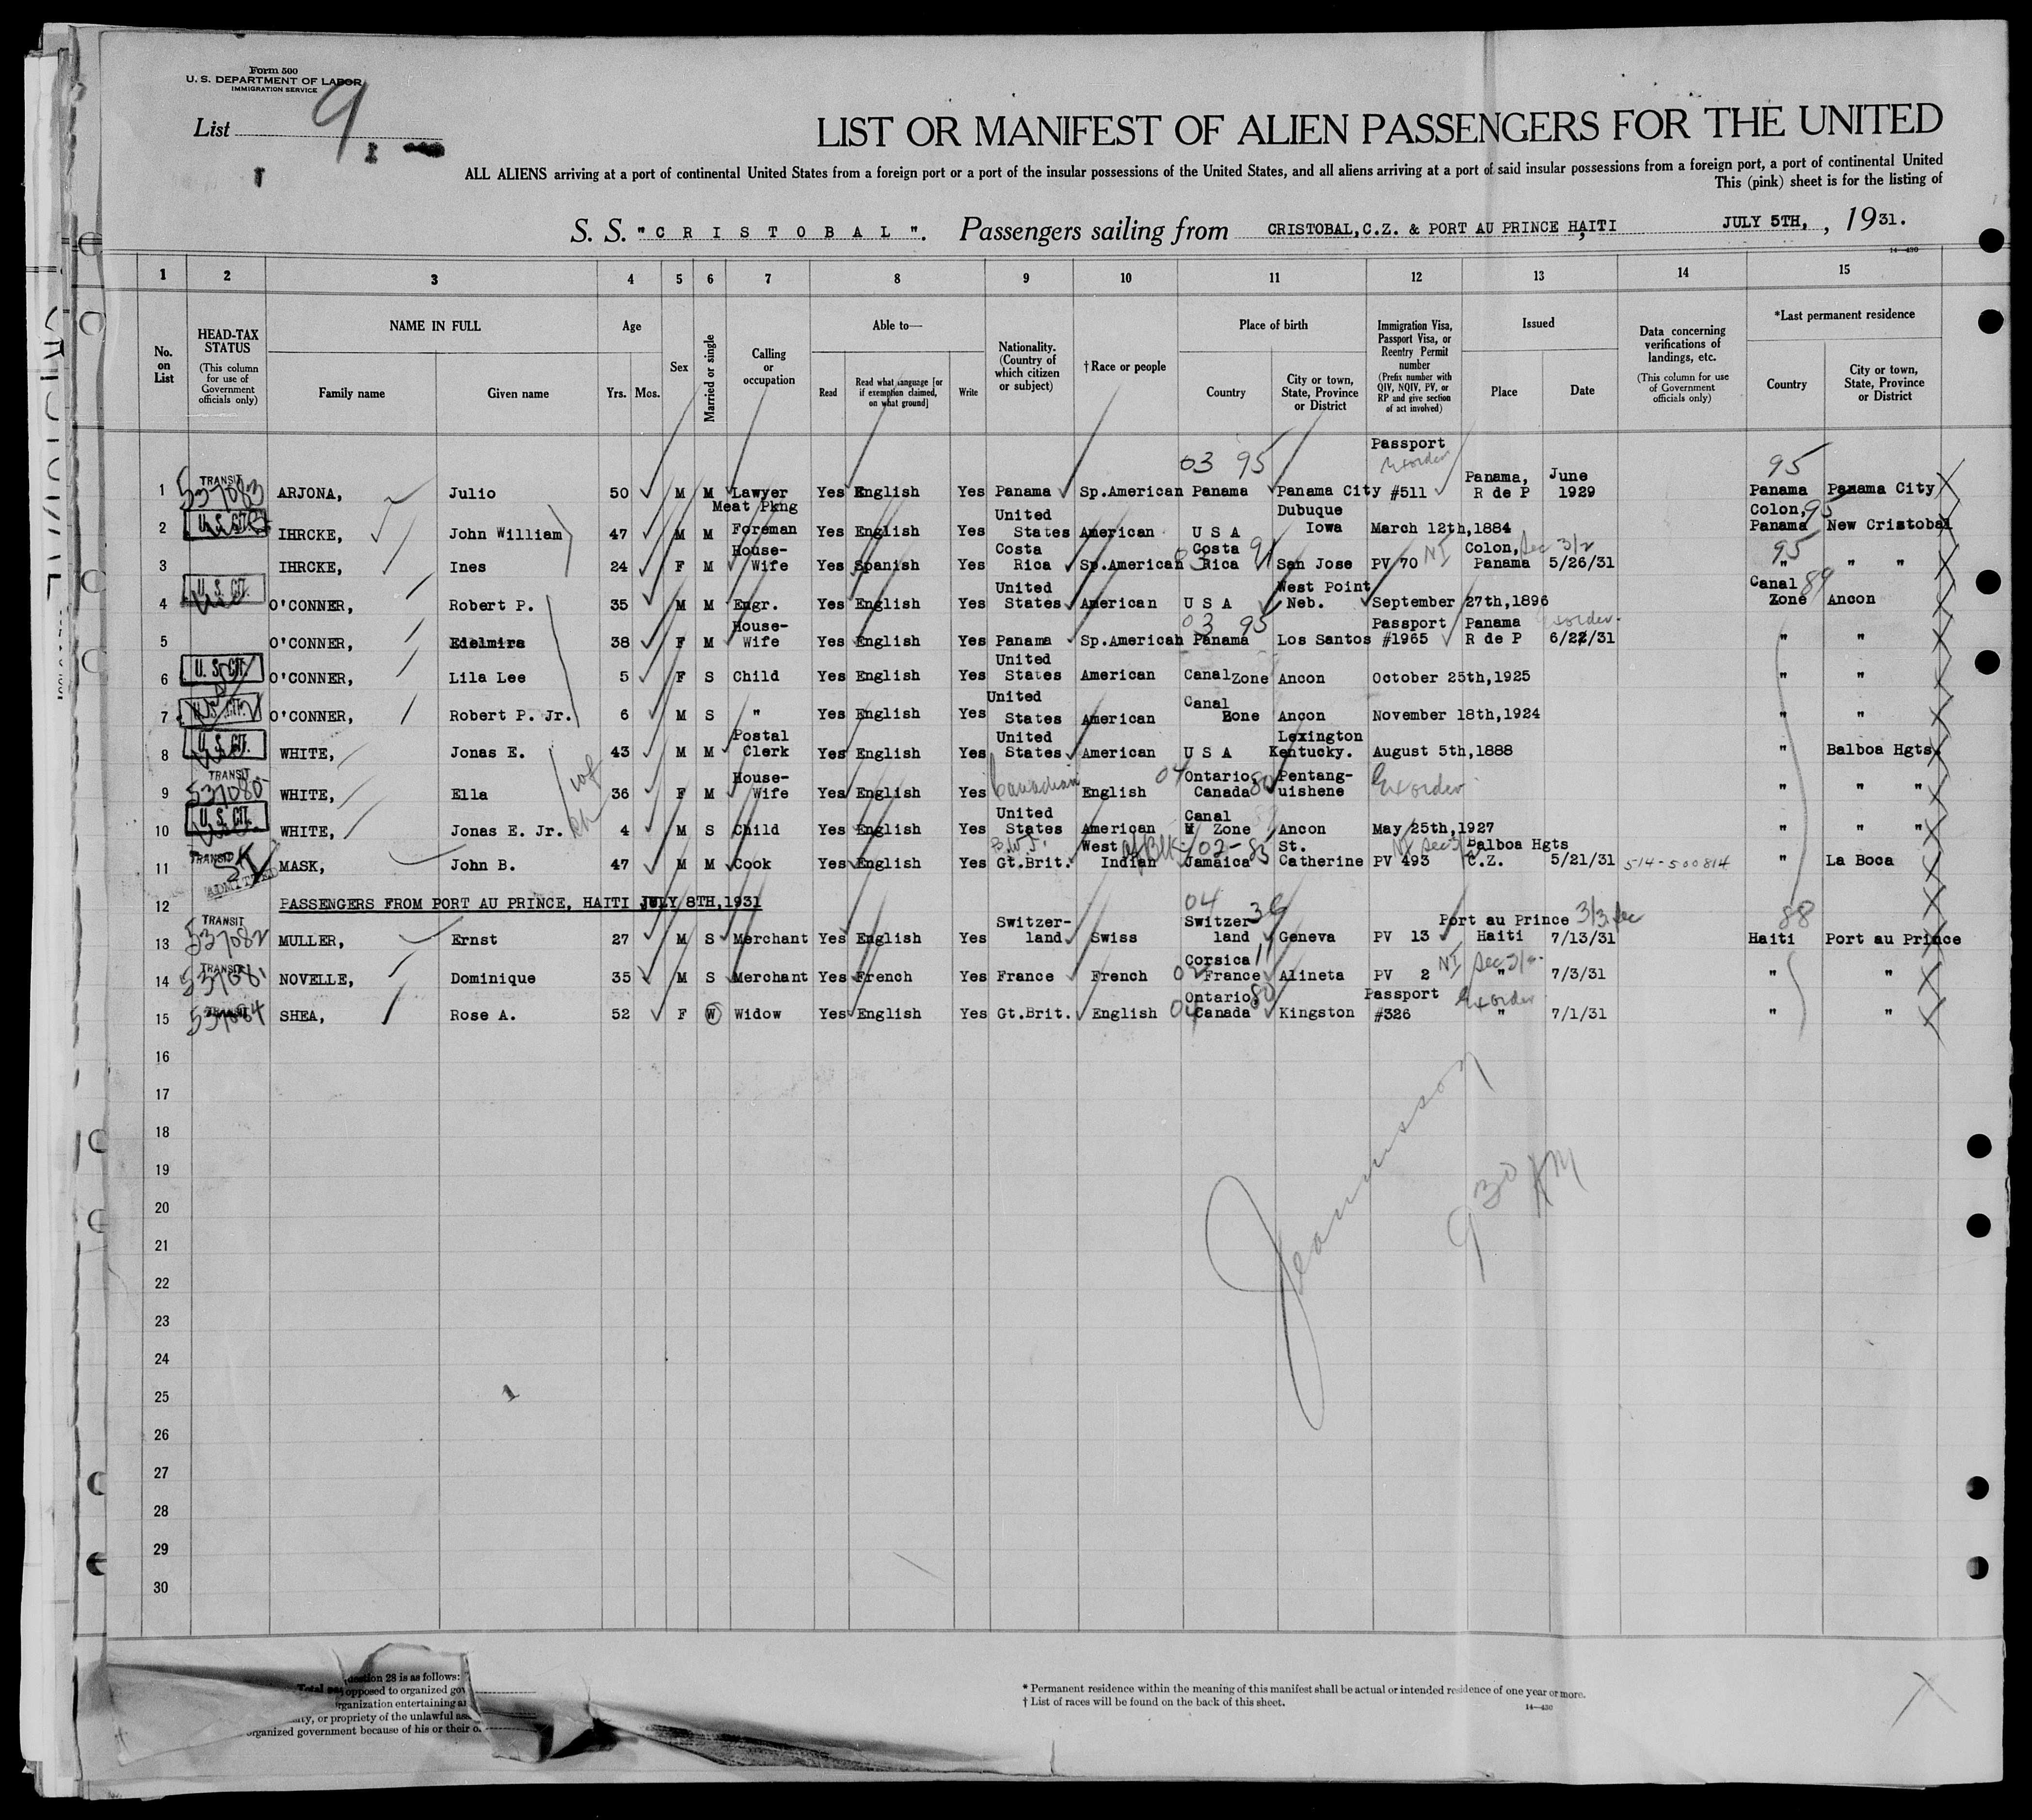 Form 500
U. S. DEPARTMENT OF LABOR
IMMIGRATION SERVICE
List 9
LIST OR MANIFEST OF ALIEN PASSENGERS FOR THE UNITED
ALL ALIENS arriving at a port of continental United States from a foreign port or a port of the insular possessions of the United States, and all aliens arriving at a port of said insular possessions from a foreign port, a port of continental United
This (pink) sheet is for the listing of
S. S. "C R I S T O B A L". Passengers sailing from CRISTOBAL,C.Z. & PORT AU PRINCE HAITI JULY 5TH, , 1931.
14—430
1 2 3 4 5 6 7 8 9 10 11 12 13 14 15
No. on List
HEAD-TAX STATUS
(This column for use of Government officials only)
NAME IN FULL
Family name Given name
Age
Yrs. Mos.
Sex
Married or single
Calling or occupation
Able to—
Read
Read what language [or if exemption claimed, on what ground]
Write
Nationality. (Country of which citizen or subject)
†Race or people
Place of birth
Country
City or town, State, Province or District
Immigration Visa, Passport Visa, or Reentry Permit number
(Prefix number with QIV, NQIV, PV, or RP and give section of act involved)
Issued
Place Date
Data concerning verifications of landings, etc.
(This column for use of Government officials only)
*Last permanent residence
Country
City or town, State, Province or District
03 95 Passport 95
1 TRANSIT 537083 ARJONA, Julio 50 M M Lawyer Yes English Yes Panama Sp.American Panama Panama City #511 Panama, R de P June 1929 Panama Panama City
2 U. S. CIT. IHRCKE, John William 47 M M Meat Pkng Foreman Yes English Yes United States American U S A Dubuque Iowa March 12th,1884 Colon, Panama 95 New Cristobal
3 IHRCKE, Ines 24 F M House-Wife Yes Spanish Yes Costa Rica Sp.American Costa Rica 91 San Jose PV 70 NI Colon, Panama Sec 3/2 5/26/31 95 " " "
4 U. S. CIT. O'CONNER, Robert P. 35 M M Engr. Yes English Yes United States American U S A West Point Neb. September 27th,1896 Canal Zone 89 Ancon
5 O'CONNER, Edelmira 38 F M House-Wife Yes English Yes Panama Sp.American 03 95 Panama Los Santos Passport #1965 Panama R de P 6/22/31 " "
6 U. S. CIT. O'CONNER, Lila Lee 5 F S Child Yes English Yes United States American Canal Zone Ancon October 25th,1925 " "
7 U. S. CIT. O'CONNER, Robert P. Jr. 6 M S " Yes English Yes United States American Canal Zone Ancon November 18th,1924 " "
8 U. S. CIT. WHITE, Jonas E. 43 M M Postal Clerk Yes English Yes United States American U S A Lexington Kentucky. August 5th,1888 " Balboa Hgts.
9 TRANSIT 537080 WHITE, Ella wf 36 F M House-Wife Yes English Yes Canadian English 04 Ontario, Canada 80 Pentang-uishene Ex order " " "
10 U. S. CIT. WHITE, Jonas E. Jr. ch 4 M S Child Yes English Yes United States American Canal Zone Ancon May 25th,1927 " " "
11 TRANSIT ADMITTED MASK, John B. 47 M M Cook Yes English Yes B.W.I. Gt.Brit. West Indian 02-85 Jamaica St. Catherine PV 493 Balboa Hgts C.Z. 5/21/31 514-500814 " La Boca
12 PASSENGERS FROM PORT AU PRINCE, HAITI JULY 8TH,1931
13 TRANSIT 537082 MULLER, Ernst 27 M S Merchant Yes English Yes Switzer-land Swiss 04 Switzer land 36 Geneva PV 13 Port au Prince Haiti 3/3 Sec 7/13/31 88 Haiti Port au Prince
14 TRANSIT 537081 NOVELLE, Dominique 35 M S Merchant Yes French Yes France French Corsica France 11 Alineta PV 2 NI " 7/3/31 " "
15 TRANSIT 537084 SHEA, Rose A. 52 F W Widow Yes English Yes Gt.Brit. English 04 Ontario, Canada 80 Kingston Passport #326 Ex order " 7/1/31 " "
16
17
18
19
20
21
22
23
24
25
26
27
28
29
30
9 30 AM
question 28 is as follows:
opposed to organized gov
organization entertaining a
ty, or propriety of the unlawful ass
organized government because of his or their o
* Permanent residence within the meaning of this manifest shall be actual or intended residence of one year or more.
† List of races will be found on the back of this sheet.
14—430